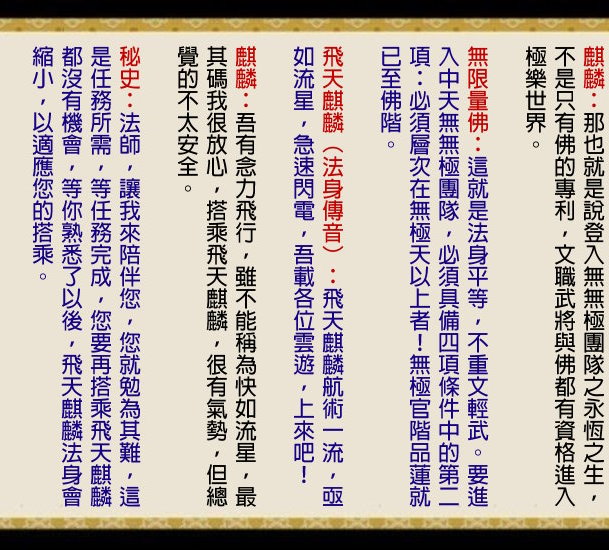 麒麟：那也就是說登入無無極團隊之永恆之生，
不是只有佛的專利，文職武將與佛都有資格進入
極樂世界。
無限量佛：這就是法身平等，不重文輕武。要進
入中天無無極團隊，必須具備四項條件中的第二
項：必須層次在無極天以上者！無極官階品蓮就
已至佛階。
飛天麒麟（法身傳音）：飛天麒麟航術一流，亟
如流星，急速閃電，吾載各位雲遊，上來吧！
麒麟：吾有念力飛行，雖不能稱為快如流星，最
其碼我很放心，搭乘飛天麒麟，很有氣勢，但總
覺的不太安全。
秘史：法師，讓我來陪伴您，您就勉為其難，這
是任務所需，等任務完成，您要再搭乘飛天麒麟
都沒有機會，等你熟悉了以後，飛天麒麟法身會
縮小，以適應您的搭乘。